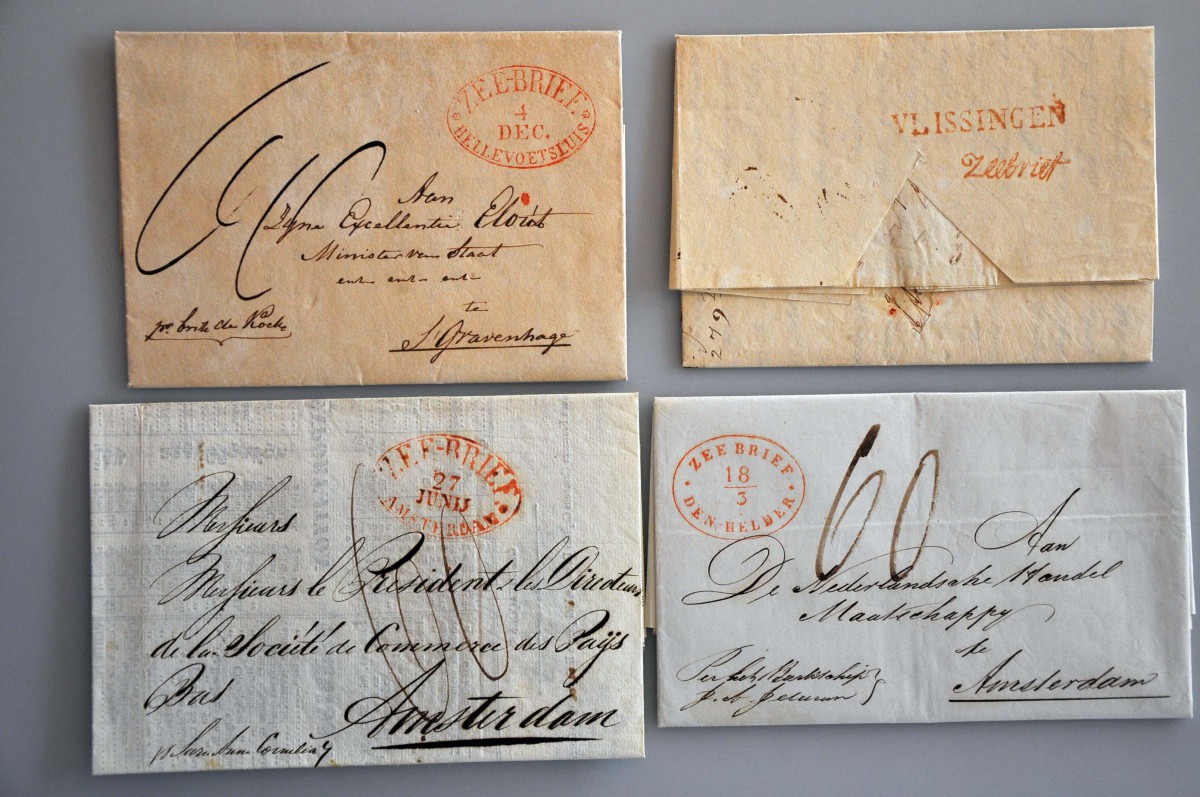 ZEE-BRIEF.
4
DEC.
HELLEVOETSLUIS
Aan
Zyne Excellentie Elout
Minister van Staat
en en en
te
S'Gravenhage
pr brik de Kock
VLISSINGEN
Zeebrief
279
ZEE-BRIEF.
27
JUNIJ
AMSTERDAM
Messieurs
Messieurs le Président & les Directeurs
de la Société de Commerce des Païjs
Bas
Amsterdam
p Sara Anna Cornelia
ZEE BRIEF
18
3
DEN-HELDER
60
Aan
De Nederlandsche Handel
Maatschappy
te
Amsterdam
Per het Barkschip